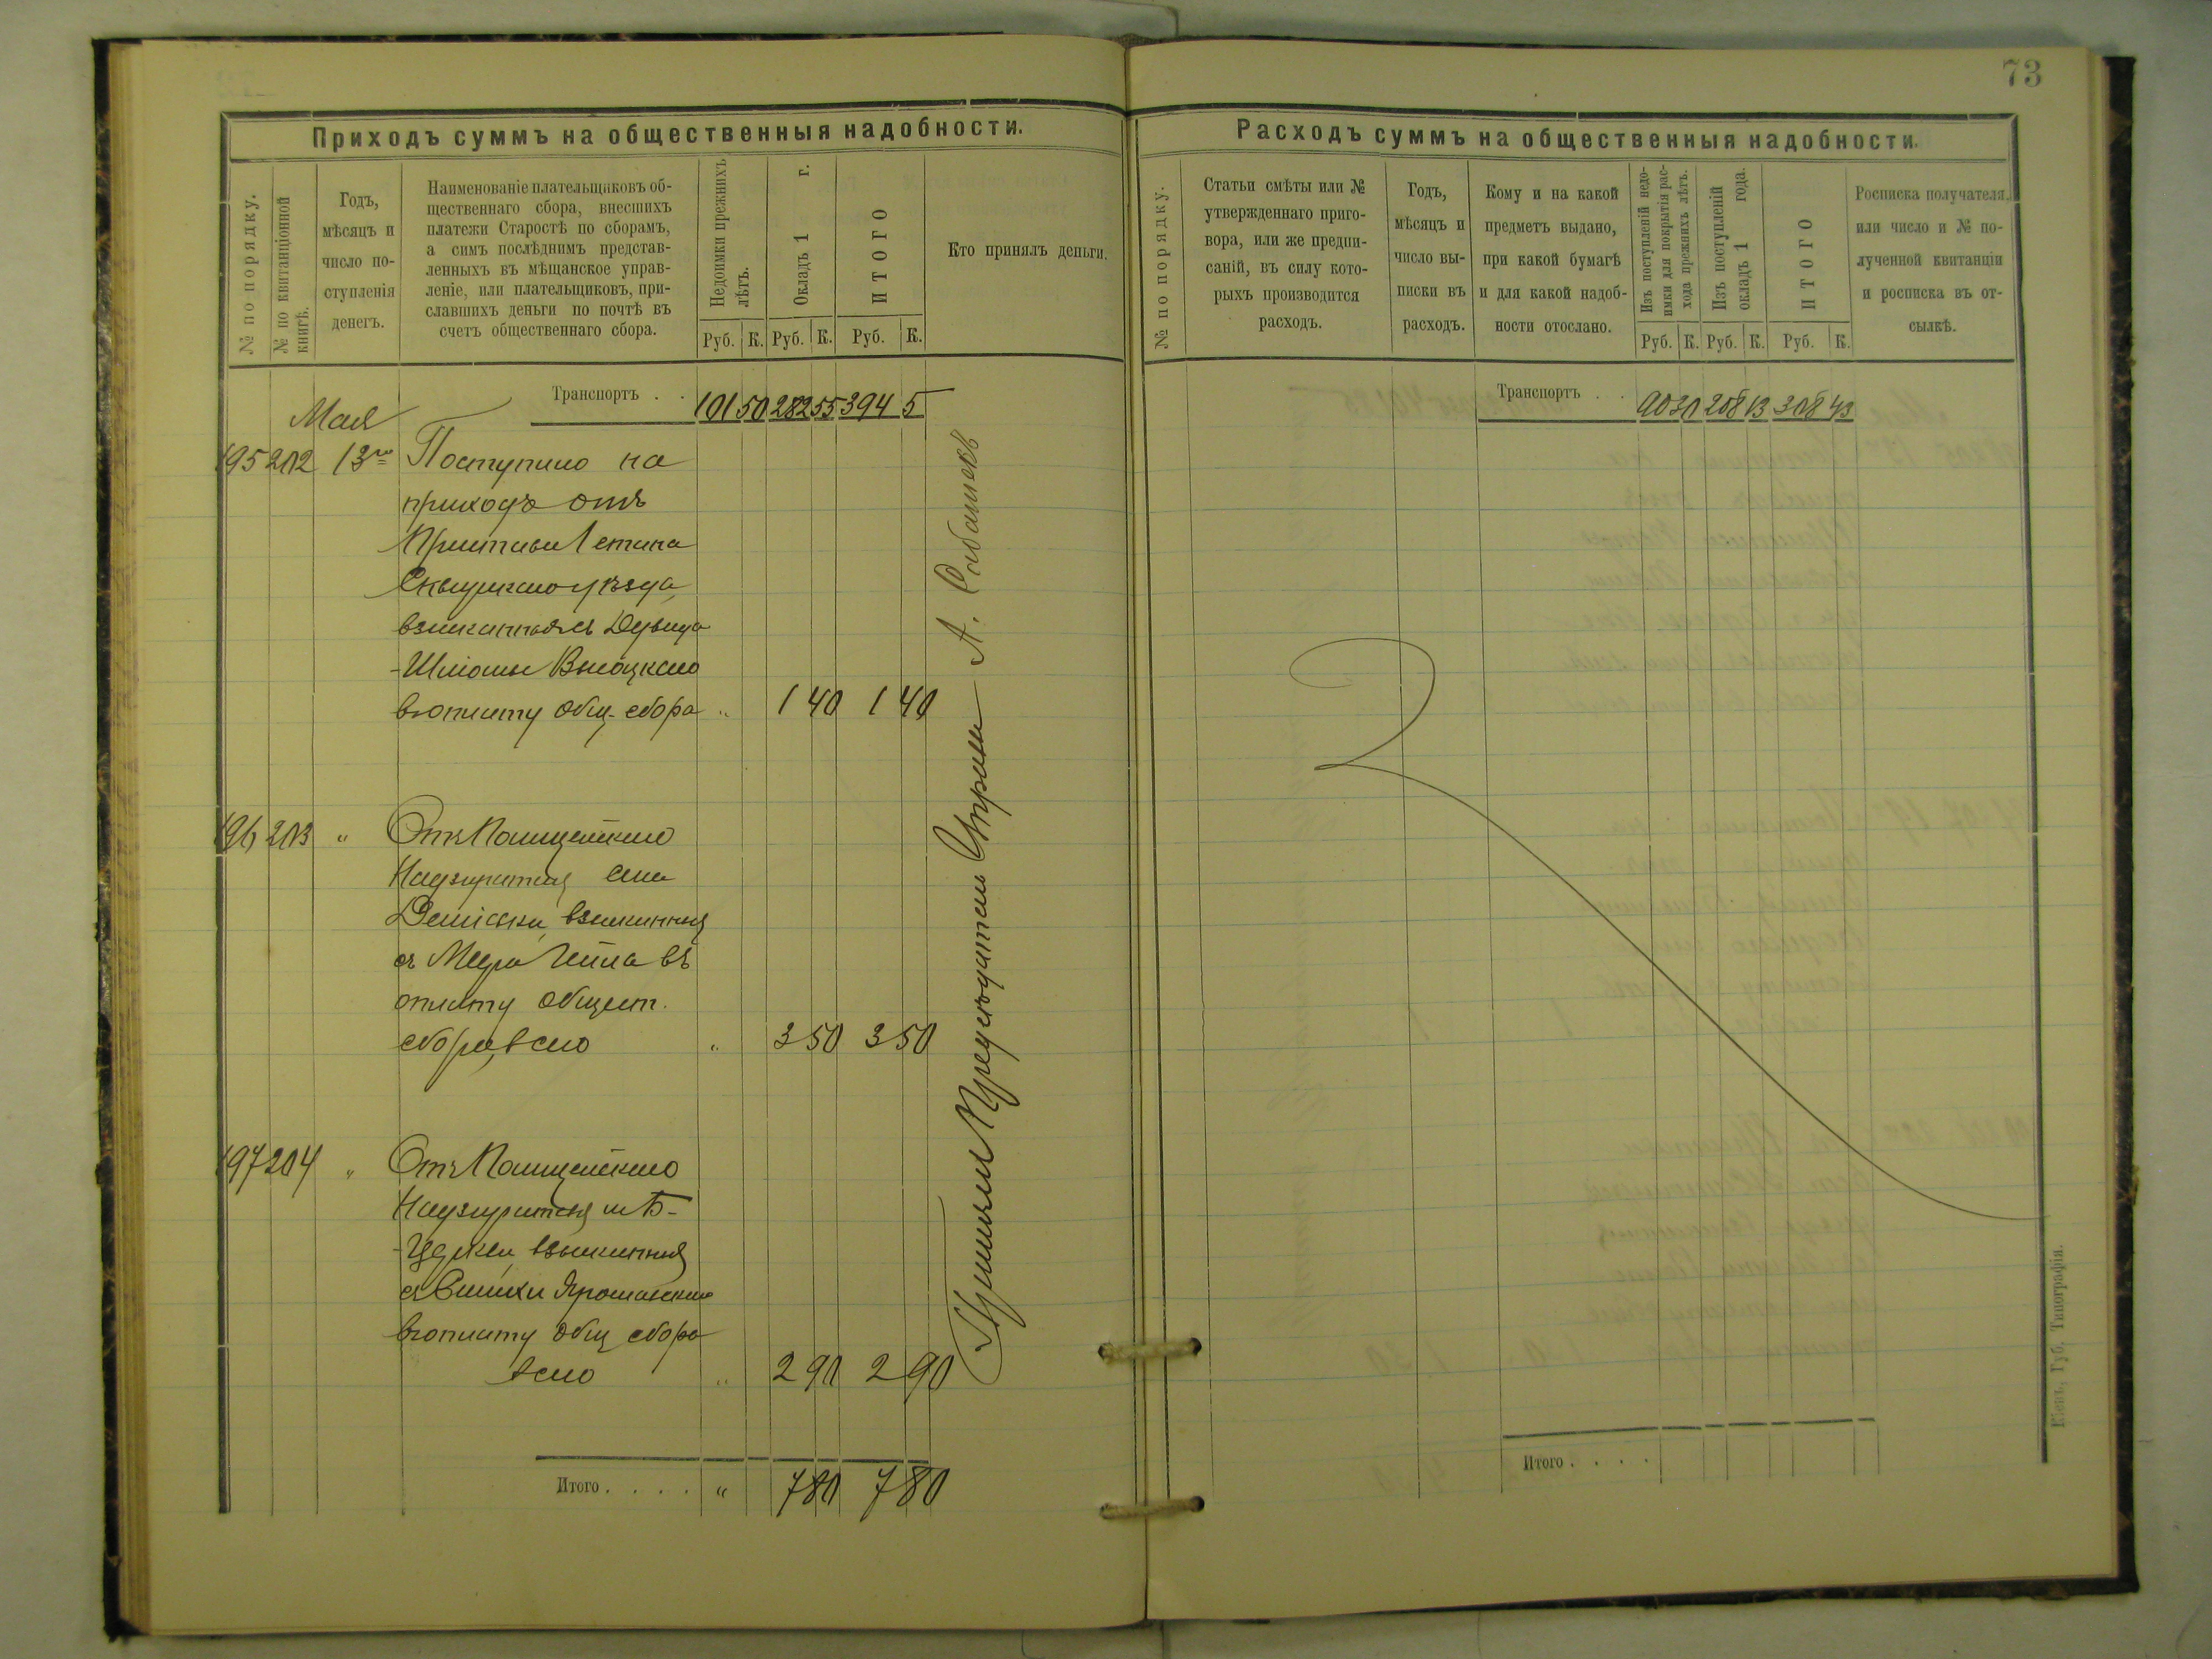 73
Приходъ суммъ на общественныя надобности.
№ по порядку.
№ по квитанціонной
книгѣ.
Годъ,
мѣсяцъ и
число по-
ступленія
денегъ.
Наименованіе плательщиковъ об-
щественнаго сбора, внесшихъ
платежи Старостѣ по сборамъ,
а симъ послѣднимъ представ-
ленныхъ въ мѣщанское управ-
леніе, или плательщиковъ, при-
славшихъ деньги по почтѣ въ
счетъ общественнаго сбора.
Недоимки прежнихъ
лѣтъ.
Окладъ 1 г.
ИТОГО
Руб. К. Руб. К. Руб. К.
Кто принялъ деньги.
Транспортъ . . 101 50 282 55 394 5
Мая
195 202 13го Поступило на
приходъ отъ
Пристава 1 стана
Сквирскаго уѣзда,
взысканныя съ Дувида
-Шлiомы Высоцкаго
въ оплату общ. сбора „ 1 40 1 40
196 203 „ Отъ Полицейскаго
Надзирателя
взысканныя
съ въ
оплату общест.
сбора, всего „ 3 50 3 50
197 204 „ Отъ Полицейскаго
Надзирателя м. Б-
взысканныя
съ
въ оплату общ сбора
всего „ 2 90 2 90
Итого . . . . „ 7 80 7 80
Принялъ Предсѣдатель Управы А.
Расходъ суммъ на общественныя надобности.
№ по порядку.
Статьи смѣты или №
утвержденнаго приго-
вора, или же предпи-
саній, въ силу кото-
рыхъ производится
расходъ.
Годъ,
мѣсяцъ и
число вы-
писки въ
расходъ.
Кому и на какой
предметъ выдано,
при какой бумагѣ
и для какой надоб-
ности отослано.
Изъ поступленій недо-
имки для покрытія рас-
хода прежнихъ лѣтъ.
Изъ поступленій
окладъ 1 года.
ИТОГО
Руб. К. Руб. К. Руб. К.
Росписка получателя,
или число и № по-
лученной квитанціи
и росписка въ от-
сылкѣ.
Транспортъ . . 90 30 208 13 308 43
Итого . . . .
Кіевъ, Губ. Типографія.